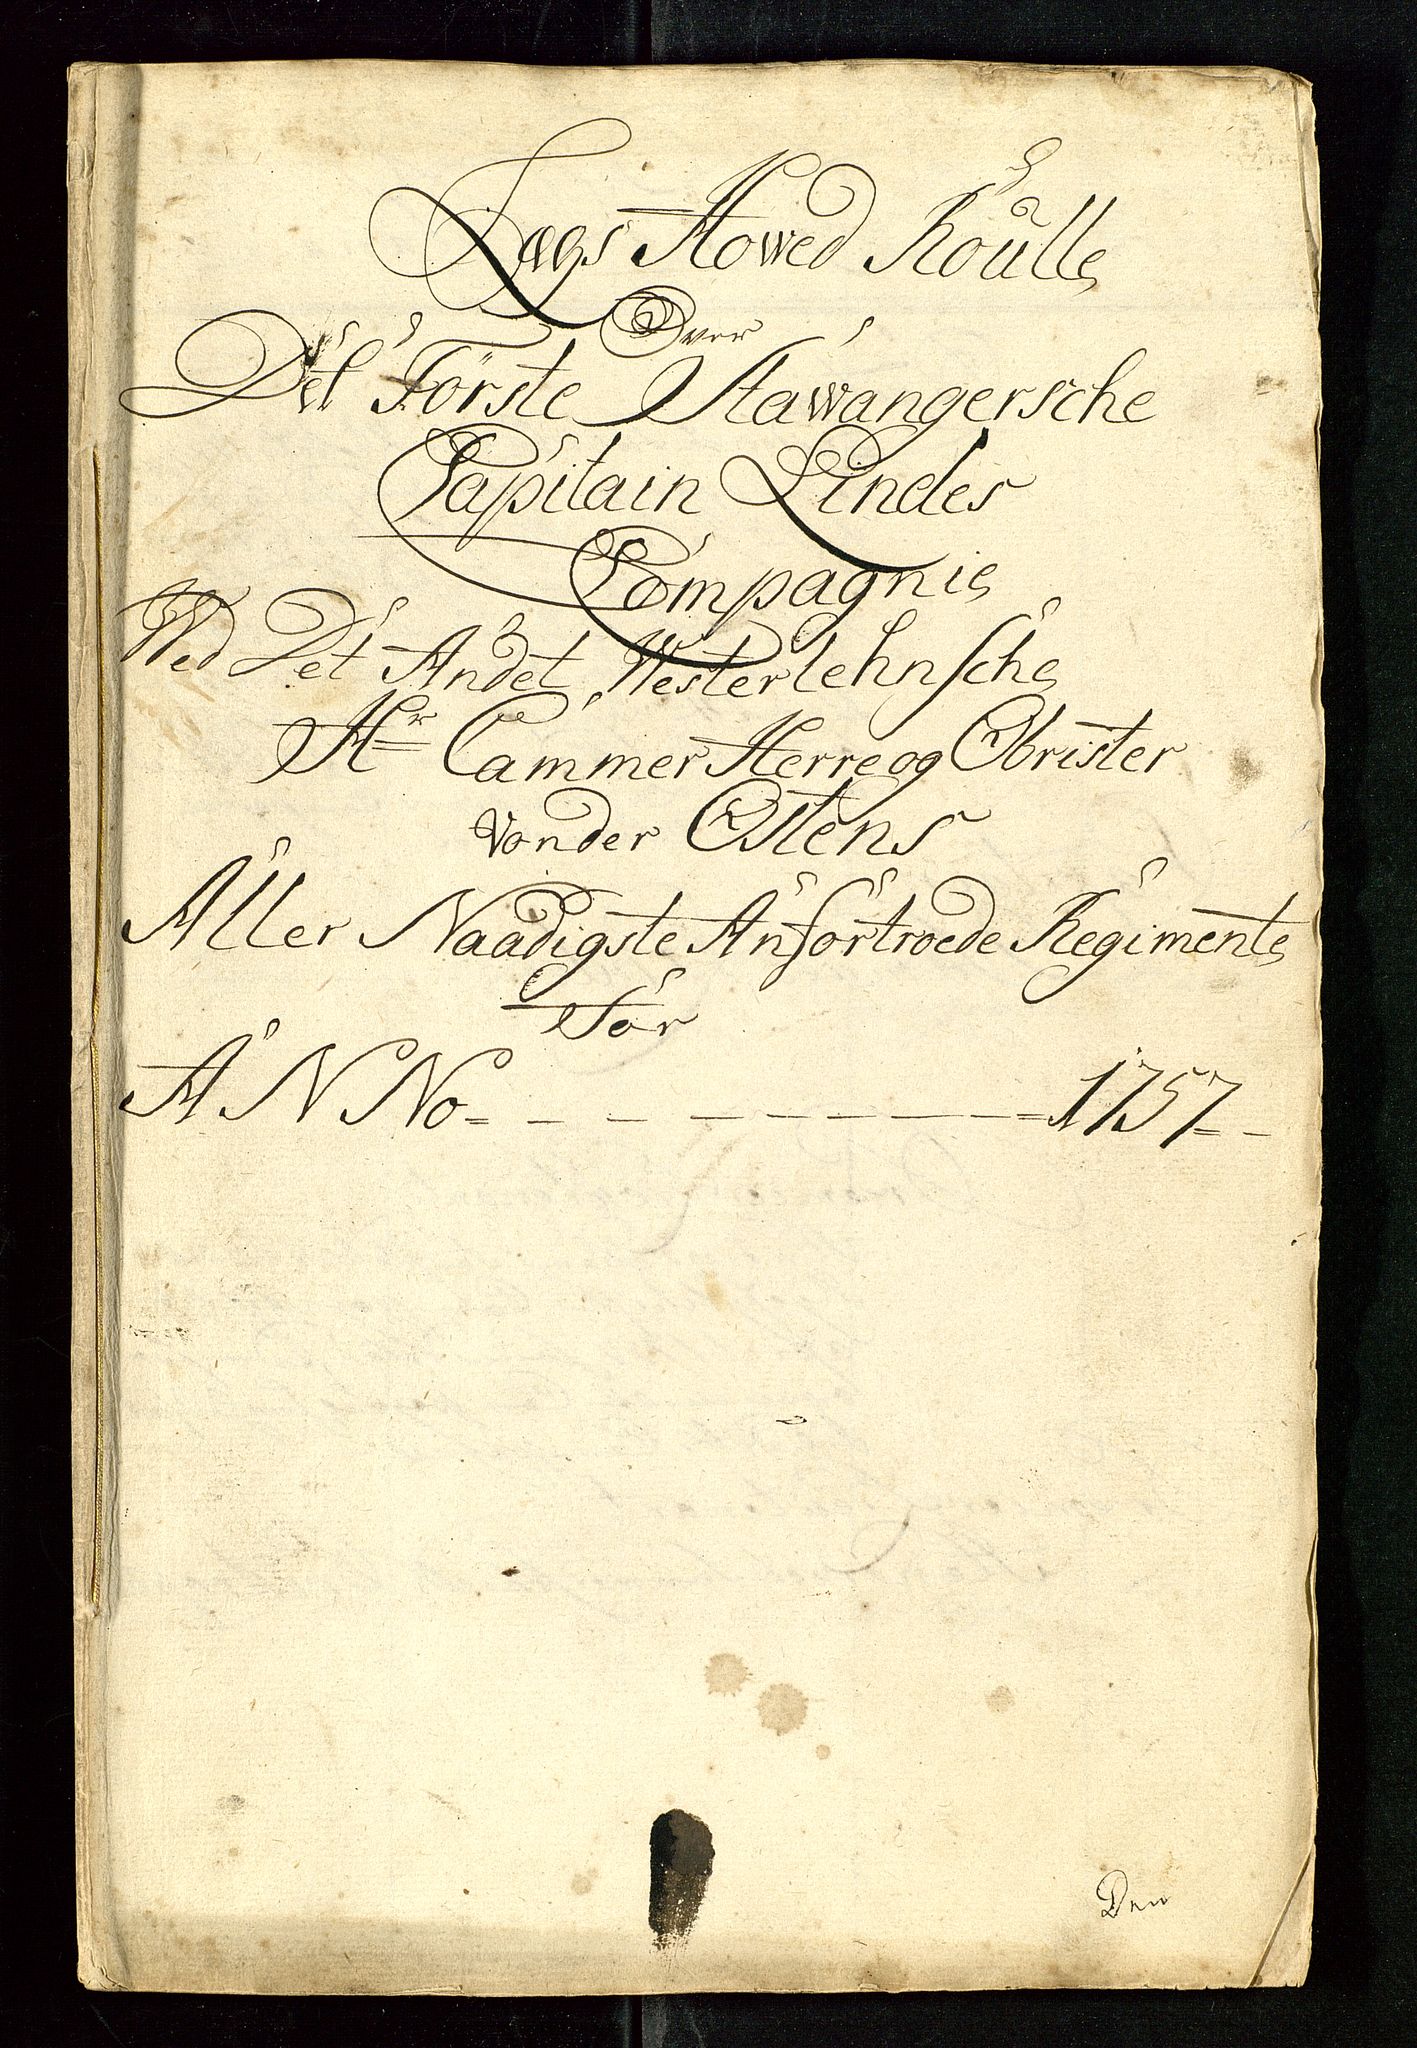 Lægs Howed Roulle
Over
Det Förste Stawangersche
Capitain Lindes
Compagnie
Wed Det Andet Westerlehnsche
Hr Cammer Herre og Obrister
von der Ostens
Aller Naadigste Anfortroede Regimente
For
ANNo = - - - - - - - = 1757 = -
Den